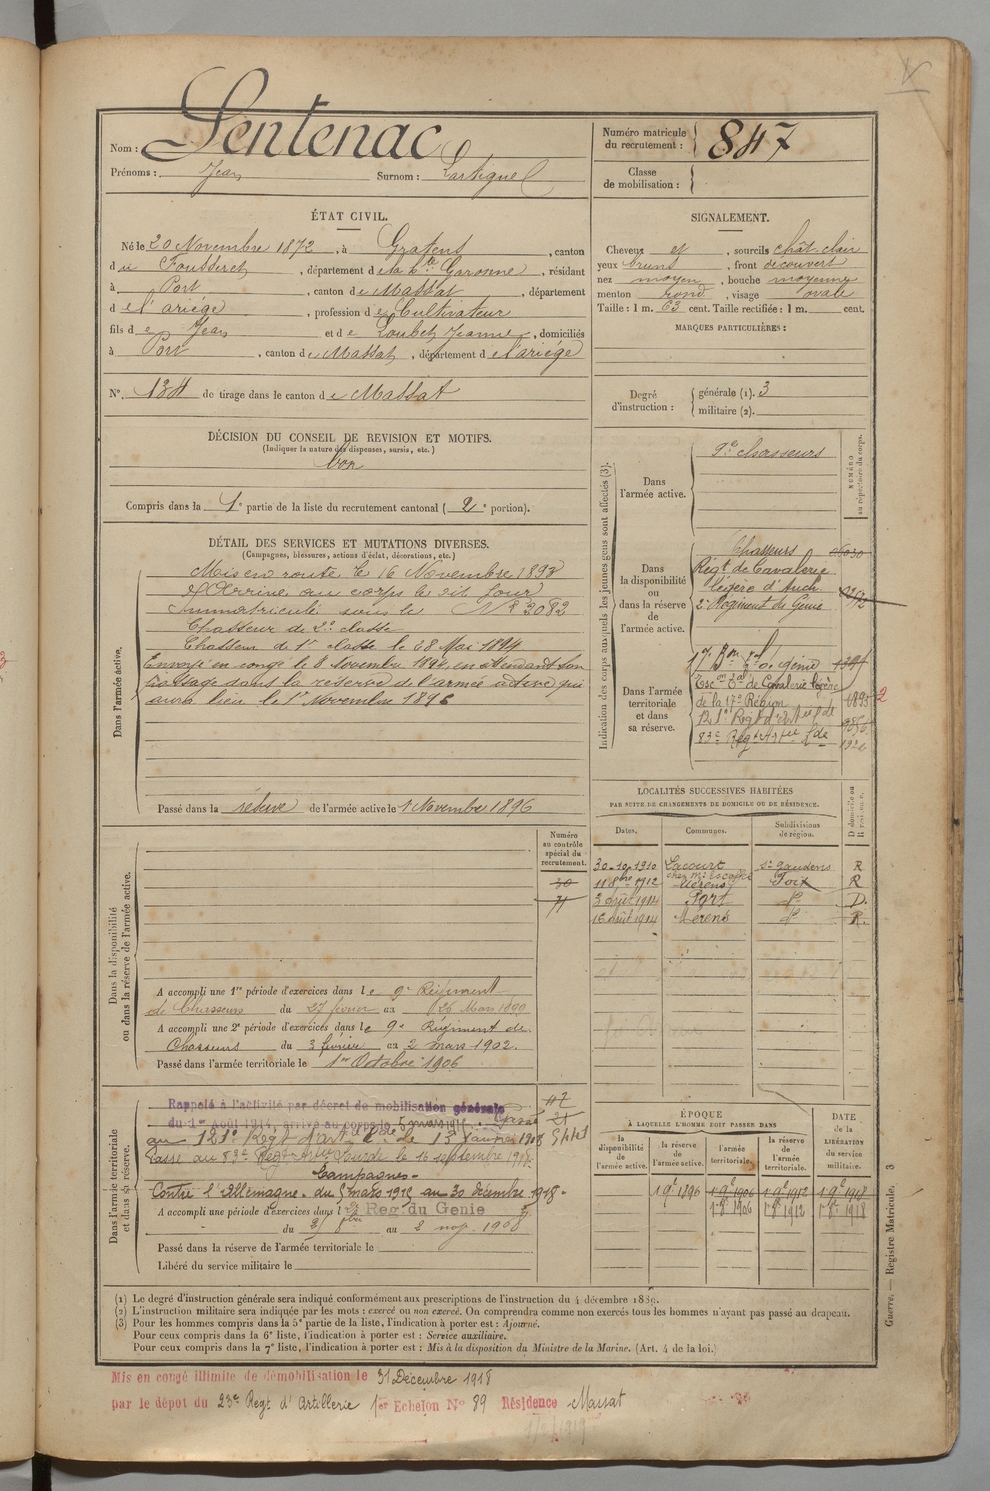 Nom : Sentenac
Prénoms : Jean Surnom : Lartigue
Numéro matricule du recrutement : 847
Classe de mobilisation :
ÉTAT CIVIL.
Né le 20 Novembre 1872, à Gratens, canton
du Fousseret, département de la Hte Garonne, résidant
à Port, canton de Massat, département
de l'ariége, profession de Cultivateur
fils de Jean et de Loubet Jeanne, domiciliés
à Port, canton de Massat, département de l'ariége
N° 134 de tirage dans le canton de Massat
DÉCISION DU CONSEIL DE REVISION ET MOTIFS.
(Indiquer la nature des dispenses, sursis, etc.)
bon
Compris dans la 1e partie de la liste du recrutement cantonal (2e portion).
SIGNALEMENT.
Cheveux et, sourcils chât. clair
yeux bruns, front découvert
nez moyen, bouche moyenne
menton rond, visage ovale
Taille : 1 m. 63 cent. Taille rectifiée : 1 m. cent.
MARQUES PARTICULIÈRES :
Degré d'instruction : générale (1). 3
militaire (2).
DÉTAIL DES SERVICES ET MUTATIONS DIVERSES.
(Campagnes, blessures, actions d'éclat, décorations, etc.)
Dans l'armée active.
Mis en route le 16 Novembre 1893
Arrivé au corps le dit jour
Immatriculé sous le N° 3082
Chasseur de 2e classe
Chasseur de 1e classe le 28 Mai 1894
Envoyé en congé le 8 Novembre 1894, en attendant son
passage dans la réserve de l'armée active qui
aura lieu le 1r Novembre 1896
Passé dans la réserve de l'armée active le 1 Novembre 1896
Indication des corps auxquels les jeunes gens sont affectés (3).
NUMÉRO au répertoire du corps.
Dans l'armée active.
9e chasseurs
Dans la disponibilité ou dans la réserve de l'armée active.
Chasseurs
Régt de Cavalerie
légère d'Auch
2e Régiment de Génie
Dans l'armée territoriale et dans sa réserve.
17e Bon Tal du génie
Esc on Tal de Cavalerie légère
de la 17e Région 1893
83e Regt Artie Lde
LOCALITÉS SUCCESSIVES HABITÉES
PAR SUITE DE CHANGEMENTS DE DOMICILE OU DE RÉSIDENCE.
Dates. Communes. Subdivisions de région. D domicile ou R résidence.
30-10-1910 Lacourt St Gaudens R
11 8bre 1912 Mérens Foix R
3 août 1914 Port do D.
16 août 1914 Mérens do R.
Numéro au contrôle spécial du recrutement.
30
71
Dans la disponibilité ou dans la réserve de l'armée active.
A accompli une 1re période d'exercices dans le 9e Régiment
de Chasseurs du 27 février au 26 Mars 1899
A accompli une 2e période d'exercices dans le 9e Régiment de
Chasseurs du 3 février au 2 mars 1902.
Passé dans l'armée territoriale le 1er Octobre 1906
Dans l'armée territoriale et dans sa réserve.
Rappelé à l'activité par décret de mobilisation générale
du 1er Août 1914, arrivé au corps le 5 mars 1915. Passé
au 121e Régt d'art le Lde le 13 Janvier 1918
Passé au 83e Regt Artie Lourde le 16 septembre 1918.
Campagnes.
Contre l'Allemagne. du 5 mars 1915 au 30 décembre 1918.
A accompli une période d'exercices dans le 2e Reg. du Génie
du au 2 nov. 1908
Passé dans la réserve de l'armée territoriale le
Libéré du service militaire le
ÉPOQUE
À LAQUELLE L'HOMME DOIT PASSER DANS
la disponibilité de l'armée active. la réserve de l'armée active. l'armée territoriale. la réserve de l'armée territoriale.
DATE DE LA LIBÉRATION du service militaire.
1 9e 1896 1 9e 1906 1 9e 1912 1 9e 1918
1 8e 1906 1 8e 1912 1 8e 1918
Guerre. — Registre Matricule. 3
(1) Le degré d'instruction générale sera indiqué conformément aux prescriptions de l'instruction du 4 décembre 1889.
(2) L'instruction militaire sera indiquée par les mots : exercé ou non exercé. On comprendra comme non exercés tous les hommes n'ayant pas passé au drapeau.
(3) Pour les hommes compris dans la 5e partie de la liste, l'indication à porter est : Ajourné.
Pour ceux compris dans la 6e liste, l'indication à porter est : Service auxiliaire.
Pour ceux compris dans la 7e liste, l'indication à porter est : Mis à la disposition du Ministre de la Marine. (Art. 4 de la loi.)
Mis en congé illimité de démobilisation le 31 Décembre 1918
par le dépôt du 23e Regt d'Artillerie 1er Echelon N° 89 Résidence Massat